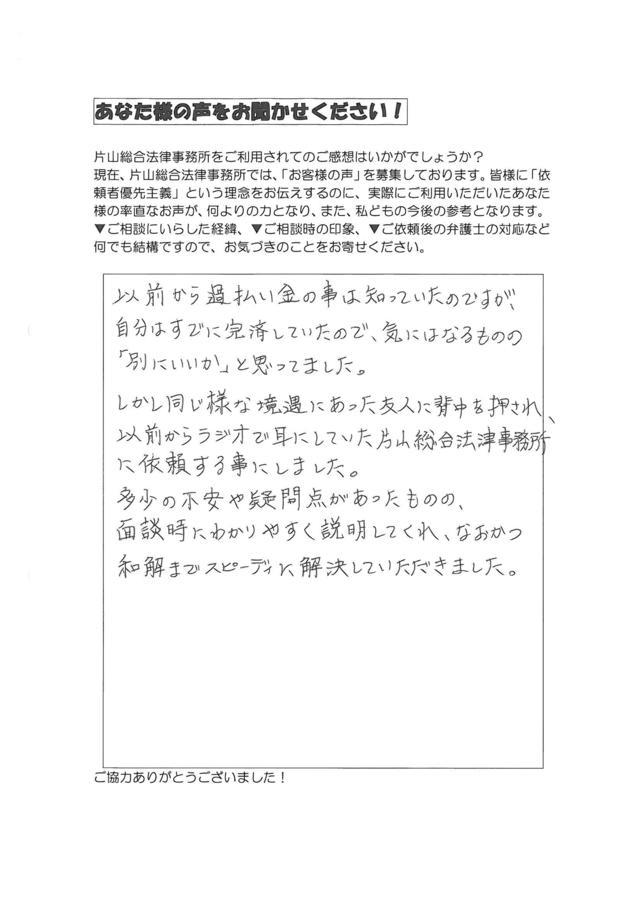 あなた様の声をお聞かせください！
片山総合法律事務所をご利用されてのご感想はいかがでしょうか？
現在、片山総合法律事務所では、「お客様の声」を募集しております。皆様に「依
頼者優先主義」という理念をお伝えするのに、実際にご利用いただいたあなた
様の率直なお声が、何よりの力となり、また、私どもの今後の参考となります。
▼ご相談にいらした経緯、▼ご相談時の印象、▼ご依頼後の弁護士の対応など
何でも結構ですので、お気づきのことをお寄せください。
以前から過払い金の事は知っていたのですが、
自分はすでに完済していたので、気にはなるものの
「別にいいか」と思ってました。
しかし同じ様な境遇にあった友人に背中を押され、
以前からラジオで耳にしていた片山総合法律事務所
に依頼する事にしました。
多少の不安や疑問点があったものの、
面談時にわかりやすく説明してくれ、なおかつ
和解までスピーディに解決していただきました。
ご協力ありがとうございました！